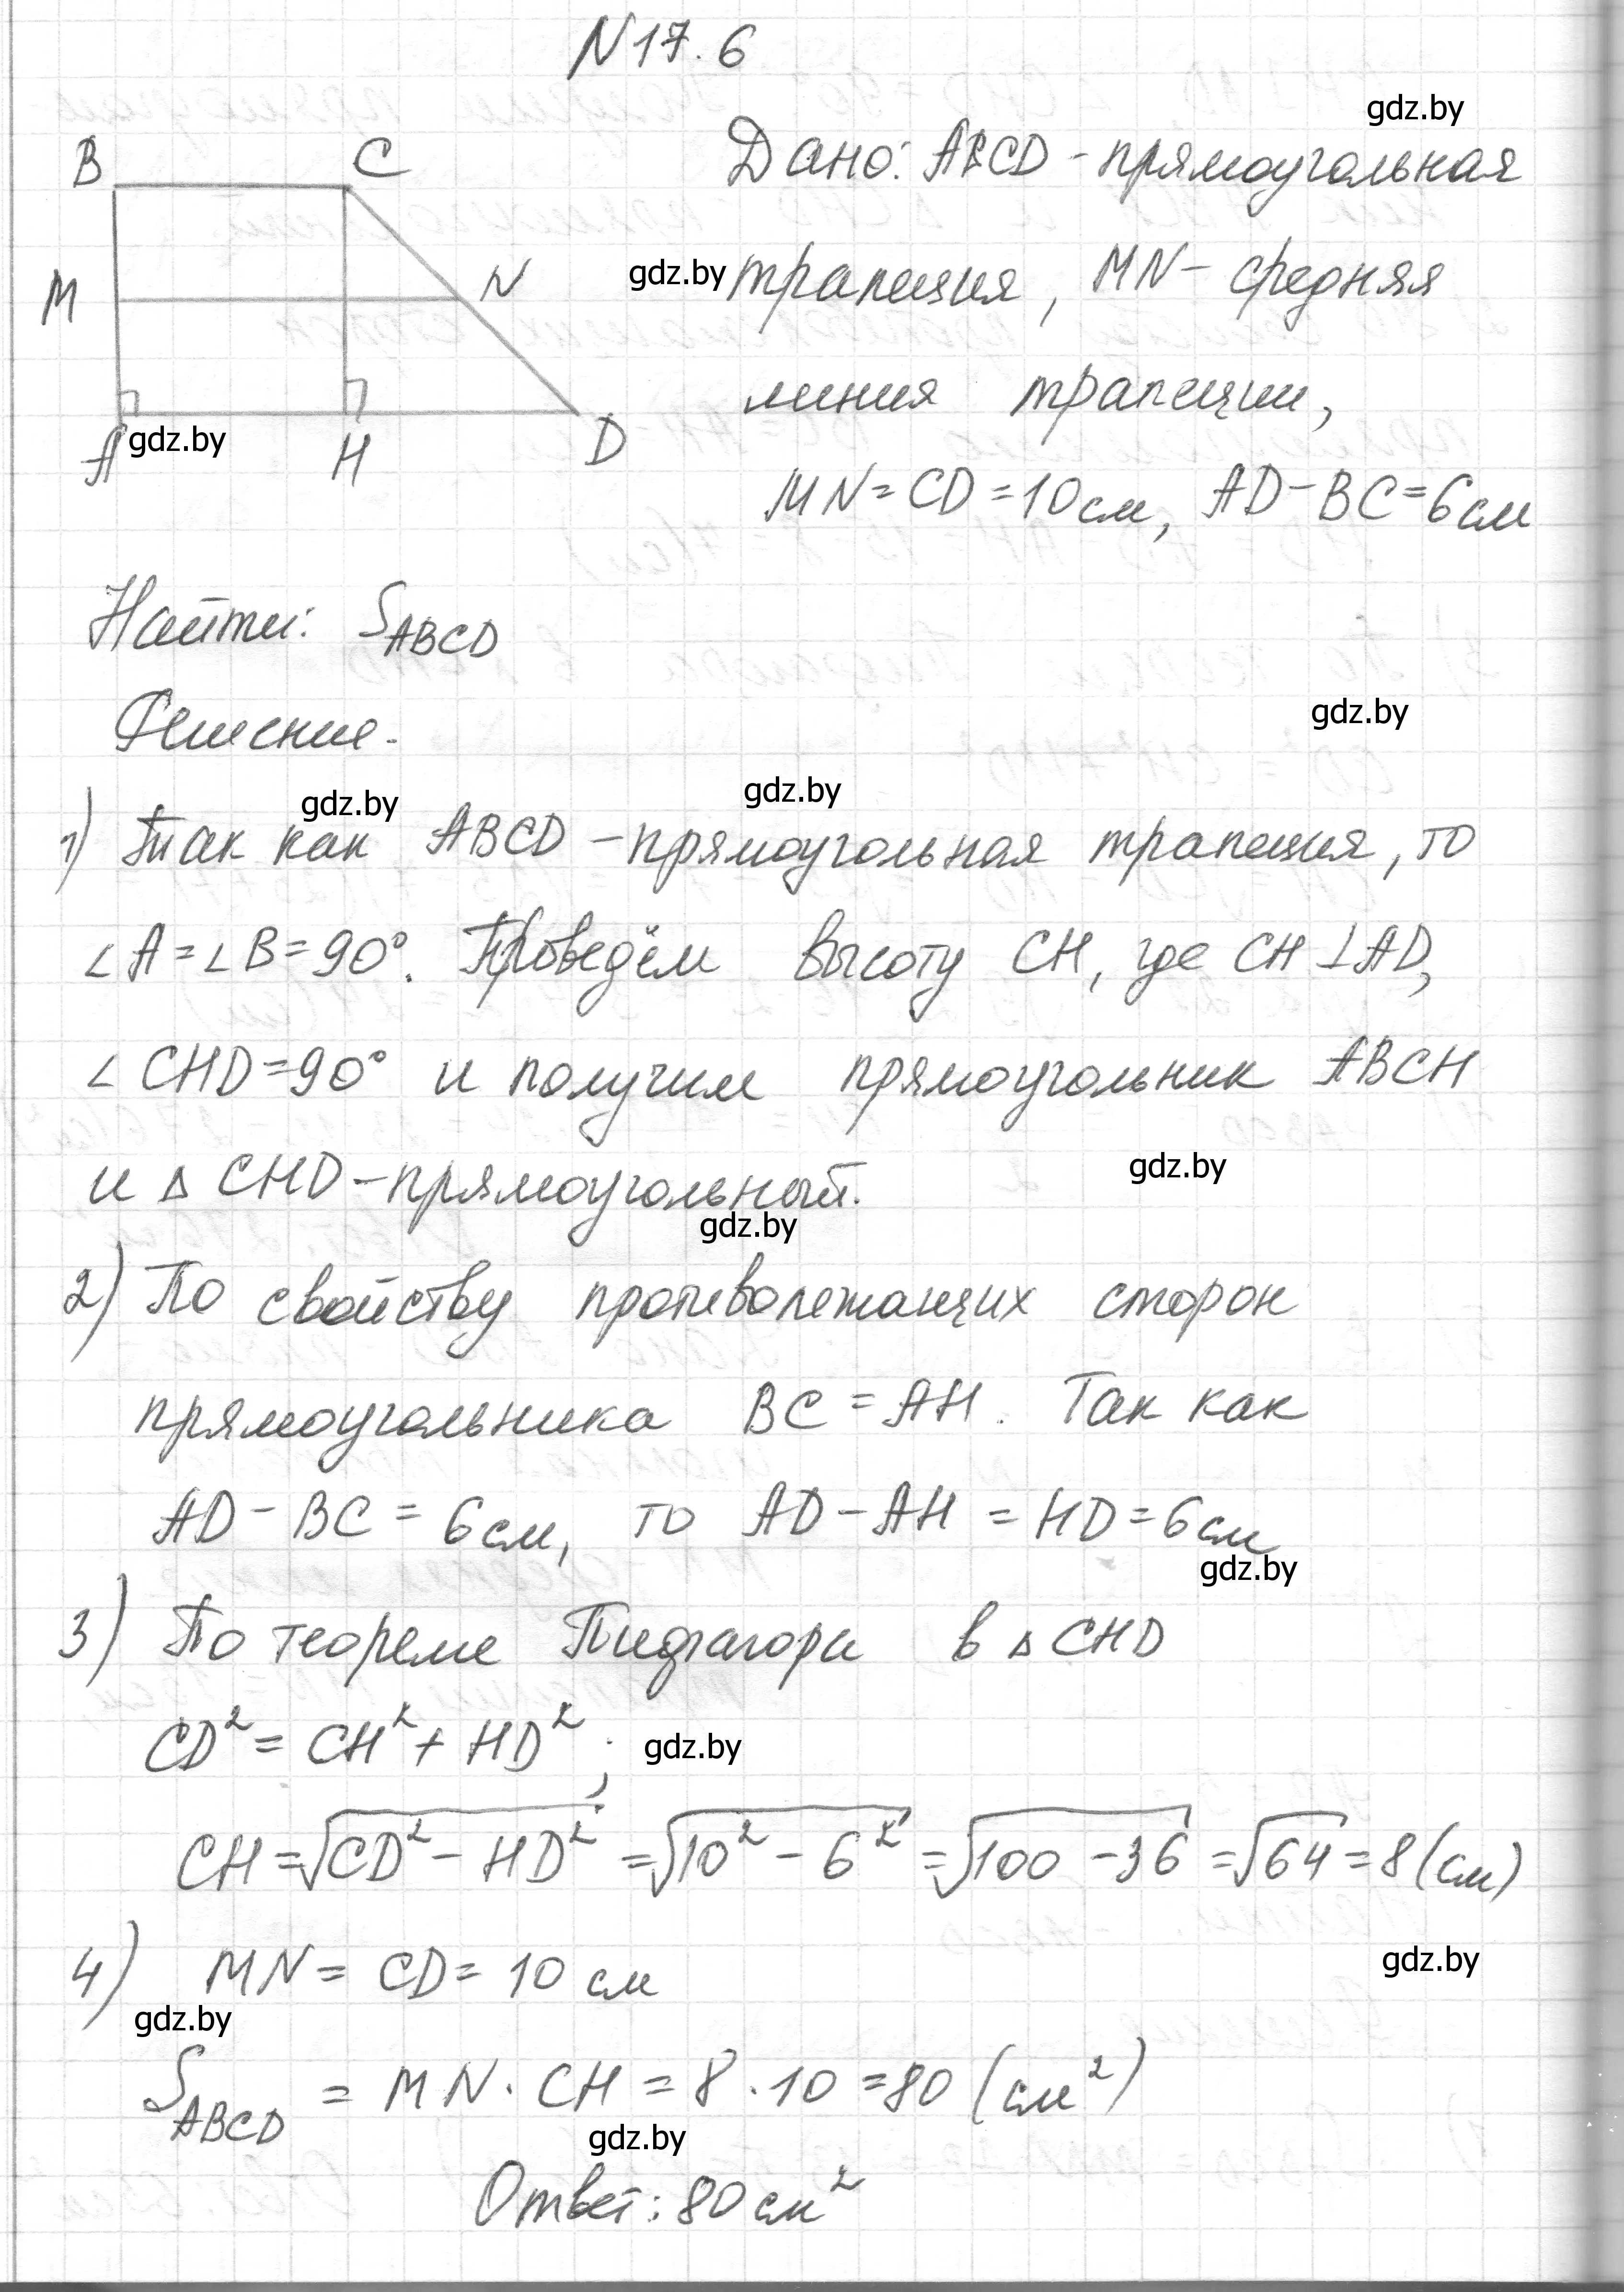 N 17.6
gdz.by
B C
Дано: ABCD - прямоугольная
M N
gdz.by
трапеция, MN - средняя
линия трапеции,
A gdz.by H D
MN = CD = 10 см, AD - BC = 6 см
Найти: S_ABCD
Решение.
gdz.by
gdz.by gdz.by
1) Так как ABCD - прямоугольная трапеция, то
∠A = ∠B = 90°. Проведём высоту CH, где CH ⊥ AD,
∠CHD = 90° и получим прямоугольник ABCH
и △ CHD - прямоугольный.
gdz.by
gdz.by
2) По свойству противолежащих сторон
прямоугольника BC = AH. Так как
AD - BC = 6 см, то AD - AH = HD = 6 см
gdz.by
3) По теореме Пифагора в △ CHD
CD² = CH² + HD²; gdz.by
CH = √(CD² - HD²) = √(10² - 6²) = √(100 - 36) = √64 = 8 (см)
4) MN = CD = 10 см
gdz.by
gdz.by
S_ABCD = MN · CH = 8 · 10 = 80 (см²)
gdz.by
Ответ: 80 см²